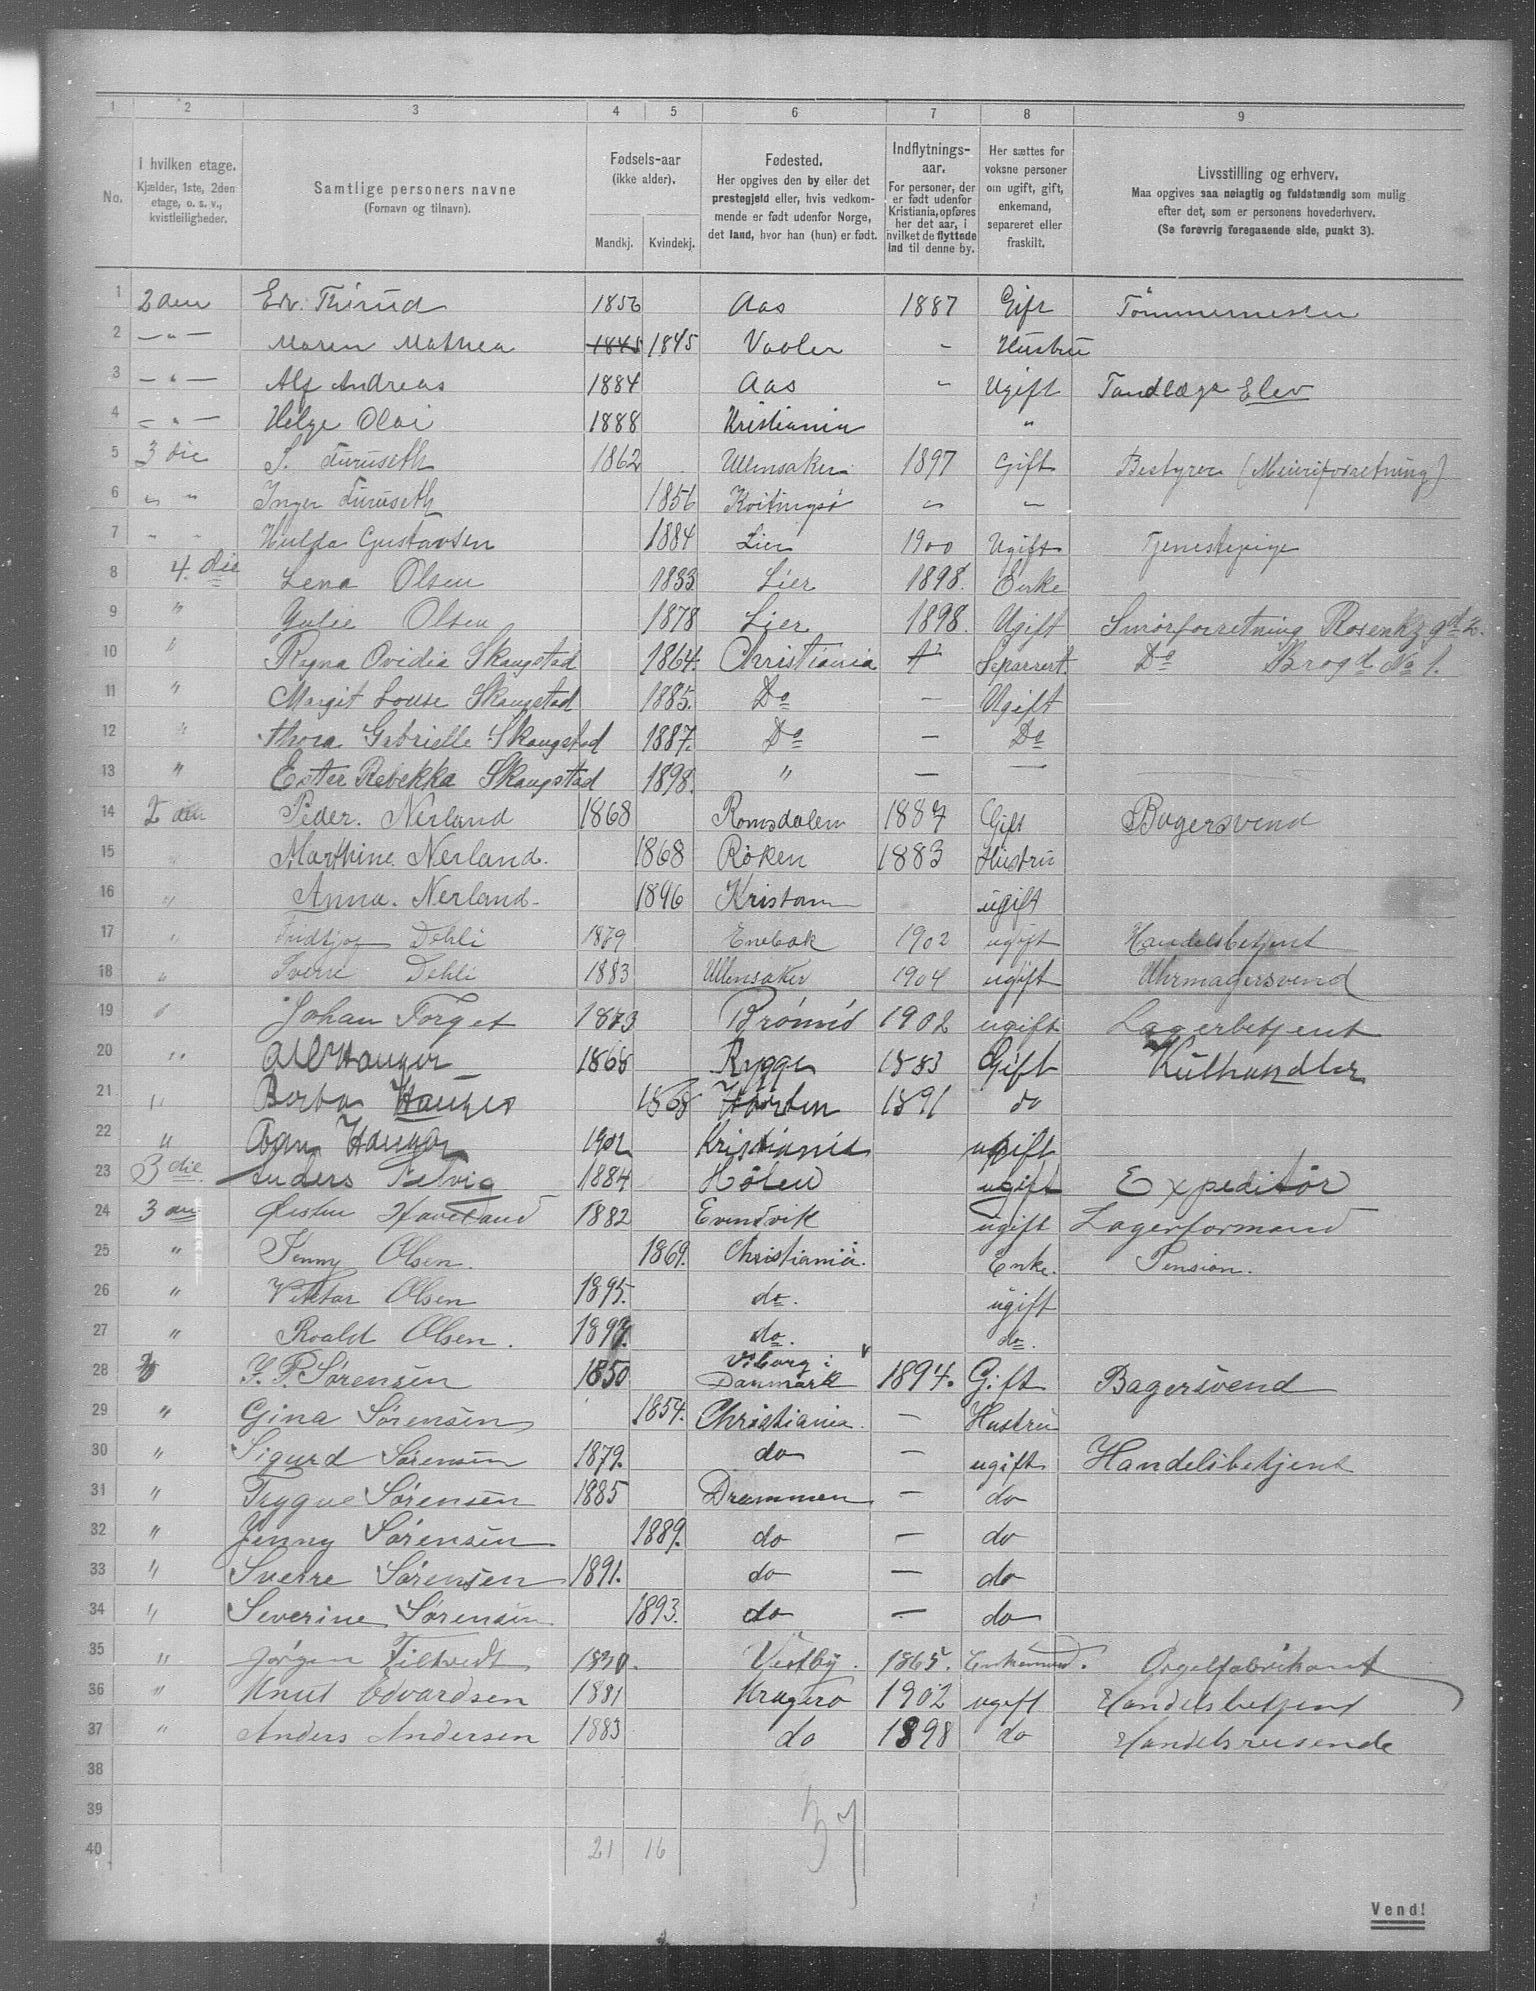 1 2 3 4 5 6 7 8 9
No.
I hvilken etage.
Kjælder, 1ste, 2den
etage, o. s. v.,
kvistleiligheder.
Samtlige personers navne
(Fornavn og tilnavn).
Fødsels-aar
(ikke alder).
Mandkj. Kvindekj.
Fødested.
Her opgives den by eller det
prestegjeld eller, hvis vedkom-
mende er født udenfor Norge,
det land, hvor han (hun) er født.
Indflytnings-
aar.
For personer, der
er født udenfor
Kristiania, opføres
her det aar, i
hvilket de flyttede
ind til denne by.
Her sættes for
voksne personer
om ugift, gift,
enkemand,
separeret eller
fraskilt.
Livsstilling og erhverv.
Maa opgives saa nøiagtig og fuldstændig som mulig
efter det, som er personens hovederhverv.
(Se forøvrig foregaaende side, punkt 3).
1 2den Edv. Thirud 1856 Aas 1887 Gift Tømmermester
2 — " — Maren Mathea 1845 1845 Vaaler - Hustru
3 — " — Alf Andreas 1884 Aas - Ugift Tandlæge Elev
4 — " — Helge Olai 1888 Kristiania "
5 3die S. Furuseth 1862 Ullensaker 1897 Gift Bestyrer (Meieriforretning)
6 " " Inger Furuseth 1856 Kvitingsø " —
7 " " Hulda Gustavsen 1884 Lier 1900 Ugift Tjenestepige
8 4. die Lena Olsen 1833 Lier 1898. Enke
9 " Julie Olsen 1878 Lier 1898. Ugift Smørforretning Rosenkz gd 2.
10 " Ragna Ovidia Skaugstad 1864. Christiania Separert. Do Brogd No 1.
11 " Margit Louse Skaugstad 1885. Do — Ugift
12 " Thora Gabrielle Skaugstad 1887. Do — Do
13 " Ester Rebekka Skaugstad 1898. " — —
14 2den Peder. Nerland 1868 Romsdalen 1887 Gift Bagersvend
15 " Marthine Nerland. 1868 Røken 1883 Hustru
16 " Anna. Nerland- 1896 Kristania ugift
17 " Fridtjof Dehli 1879 Enebak 1902 ugift Handelsbetjent
18 " Sverre Dehli 1883 Ullensaker 1904 ugift Uhrmagersvend
19 " Johan Torget 1873 Brønnø 1902 ugift Lagerbetjent
20 " Hauger 1868 Rygge 1883 Gift Kulhandler
21 " Berta Hauger 1868 Horten 1891 do
22 " Hauger 1902 Kristiania ugift
23 3die. Anders 1884 Hølen ugift Expeditør
24 3die Øisten Haveland 1882 Evendvik ugift Lagerformand
25 " Jenny Olsen. 1869. Christiania. Enke. Pension.
26 " Viktor Olsen 1895. do. ugift
27 " Roald Olsen. 1897. do. do.
28 J. P. Sørensen 1850 Viborg i Danmark 1894. Gift Bagersvend
29 " Gina Sørensen 1854. Christiania. — Hustru
30 " Sigurd Sørensen 1879. do — ugift Handelsbetjent
31 " Trygve Sørensen 1885 Drammen — do
32 " Jenny Sørensen 1889. do — do
33 " Sverre Sørensen 1891. do — do
34 " Severine Sørensen 1893. do — do
35 " Jørgen Tiltvedt 1840. Vestby. 1865. Enkemand. Orgelfabrikant
36 " Knut Edvardsen 1881 Kragerø 1902 ugift Handelsbetjent
37 " Anders Andersen 1883 do 1898 do Handelsreisende
38
39
40 21 16 37
Vend!